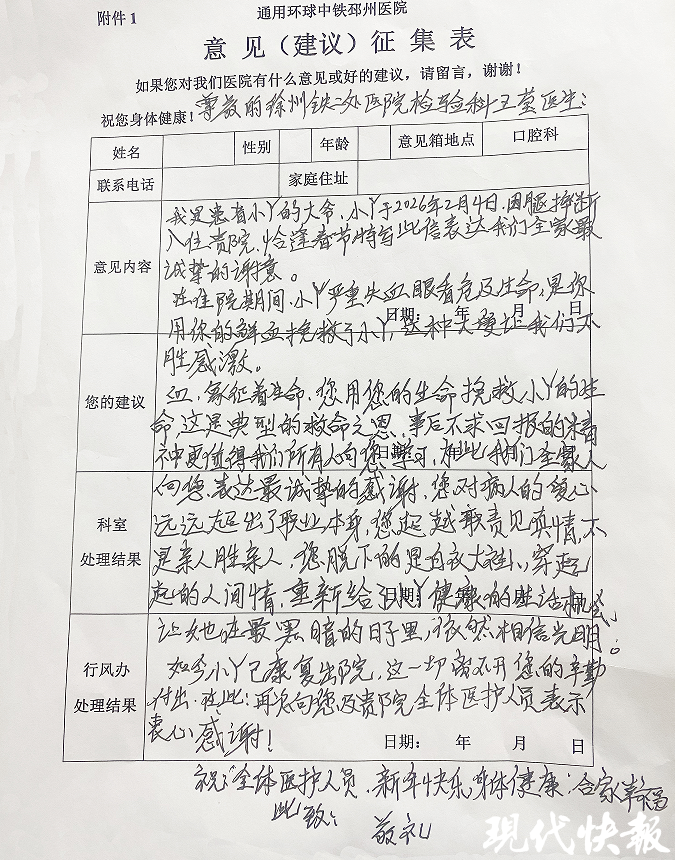 附件 1
通用环球中铁邳州医院
意 见（建议）征 集 表
如果您对我们医院有什么意见或好的建议，请留言，谢谢！
祝您身体健康！
尊敬的徐州铁二处医院检验科王莹医生：
姓名 性别 年龄 意见箱地点 口腔科
联系电话 家庭住址
意见内容
我是患者小丫的大爷，小丫于2026年2月4日，因腿摔断
入住贵院，恰逢春节特写此信表达我们全家最
诚挚的谢意。
在住院期间，小丫严重失血眼看危及生命，是你
日期： 年 月 日
用你的鲜血挽救了小丫，这种大爱让我们不
胜感激。
您的建议
血，象征着生命，您用您的生命挽救小丫的生
命，这是典型的救命之恩，事后不求回报的精
神更值得我们所有人向您学习，在此我们全家人
日期： 年 月 日
科室
处理结果
向您表达最诚挚的感谢，您对病人的爱心
远远超出了职业本身，您超越职责见真情，不
是亲人胜亲人，您脱下的是白衣大褂，穿起
起的人间情，重新给了小丫健康的生活
日期： 年 月 日
让她在最黑暗的日子里，依然相信光明。
行风办
处理结果
如今小丫已康复出院，这一切离不开您的辛勤
付出，在此：再次向您及贵院全体医护人员表示
衷心感谢！
日期： 年 月 日
祝：全体医护人员，新年快乐，身体健康，合家幸福
此致：
敬礼
现代快报